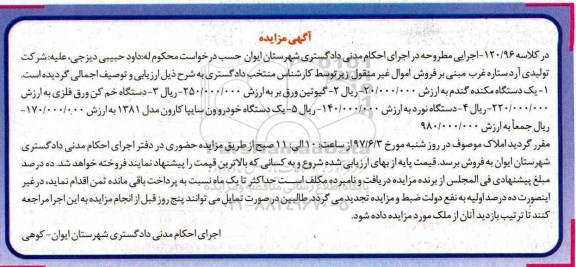 آگهی مزایده
در کلاسه ۱۲۰/۹۶-اجرایی مطروحه در اجرای احکام مدنی دادگستری شهرستان ایوان حسب درخواست محکوم له:داود حبیبی دیزجی، علیه: شرکت
تولیدی آرد ستاره غرب مبنی بر فروش اموال غیر منقول زیر توسط کارشناس منتخب دادگستری به شرح ذیل ارزیابی و توصیف اجمالی گردیده است.
۱-یک دستگاه مکنده گندم به ارزش ۲۰۰/۰۰۰/۰۰۰-ریال ۲- گیوتین ورق بر به ارزش ۲۵۰/۰۰۰/۰۰۰-ریال ۳-دستگاه خم کن ورق فلزی به ارزش
۲۲۰/۰۰۰/۰۰۰-ریال ۴-دستگاه نورد به ارزش ۱۴۰/۰۰۰/۰۰۰-ریال ۵-یک دستگاه خودرو ون سایپا کارون مدل ۱۳۸۱ به ارزش ۱۷۰/۰۰۰/۰۰۰-
ریال جمعاً به ارزش ۹۸۰/۰۰۰/۰۰۰
مقرر گردید املاک موصوف در روز شنبه مورخ ۹۷/۶/۳ از ساعت: ۱۰ الی: ۱۱ صبح از طریق مزایده حضوری در دفتر اجرای احکام مدنی دادگستری
شهرستان ایوان به فروش برسد. قیمت پایه از بهای ارزیابی شده شروع و به کسانی که بالاترین قیمت را پیشنهاد نمایند فروخته خواهد شد. ده درصد
مبلغ پیشنهادی فی المجلس از برنده مزایده دریافت و نامبرده مکلف است حداکثر تا یک ماه نسبت به پرداخت باقی مانده ثمن اقدام نماید، در غیر
اینصورت ده درصد اولیه به نفع دولت ضبط و مزایده تجدید می گردد. طالبین در صورت تمایل می توانند پنج روز قبل از انجام مزایده به این اجرا مراجعه
کنند تا ترتیب بازدید آنان از ملک مورد مزایده داده شود.
اجرای احکام مدنی دادگستری شهرستان ایوان- کوهی